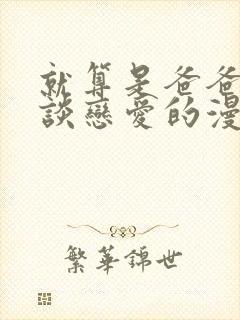 就算是爸爸
談戀愛的漫
繁華錦世